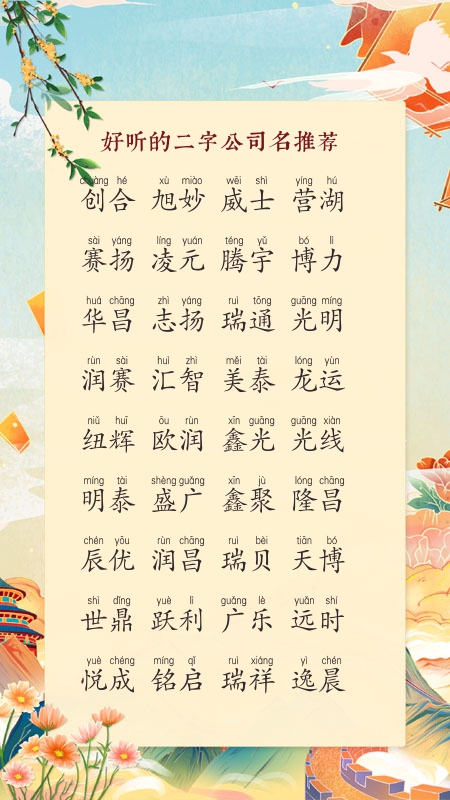 好听的二字公司名推荐
chuàng hé xù miào wēi shì yíng hú
创合 旭妙 威士 营湖
sài yáng líng yuán téng yǔ bó lì
赛扬 凌元 腾宇 博力
huá chāng zhì yáng ruì tōng guāng míng
华昌 志扬 瑞通 光明
rùn sài huì zhì měi tài lóng yùn
润赛 汇智 美泰 龙运
niǔ huī ōu rùn xīn guāng guāng xiàn
纽辉 欧润 鑫光 光线
míng tài shèng guǎng xīn jù lóng chāng
明泰 盛广 鑫聚 隆昌
chén yōu rùn chāng ruì bèi tiān bó
辰优 润昌 瑞贝 天博
shì dǐng yuè lì guǎng lè yuǎn shí
世鼎 跃利 广乐 远时
yuè chéng míng qǐ ruì xiáng yì chén
悦成 铭启 瑞祥 逸晨